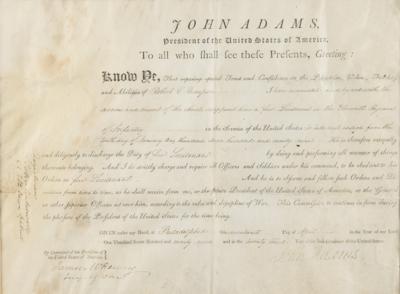 JOHN ADAMS,
President of the United States of America.
To all who shall see these Presents, Greeting:
KNOW YE, That reposing special Trust and Confidence in the Patriotism, Valour, Fidelity
and Abilities of Robert I have nominated, and by and with the
advice and consent of the Senate do appoint him a first Lieutenant in the Regiment
of Infantry in the Service of the United States: to take rank as such from the
day of January One thousand seven hundred and ninety nine. He is therefore carefully
and diligently to discharge the Duty of first Lieutenant by doing and performing all manner of things
thereunto belonging. And I do strictly charge and require all Officers and Soldiers under his command, to be obedient to his
Orders as first Lieutenant And he is to observe and follow such Orders and Di-
rections from time to time, as he shall receive from me, or the future President of the United States of America, or the General
or other superior Officers set over him, according to the rules and discipline of War. This Commission to continue in force during
the pleasure of the President of the United States for the time being.
GIVEN under my Hand, at Philadelphia this day of April in the Year of our Lord
One Thousand Seven Hundred and ninety nine and in the twenty third Year of the Independence of the United States.
John Adams
By Command of the President of
the United States of America.
James McHenry
Secy of War